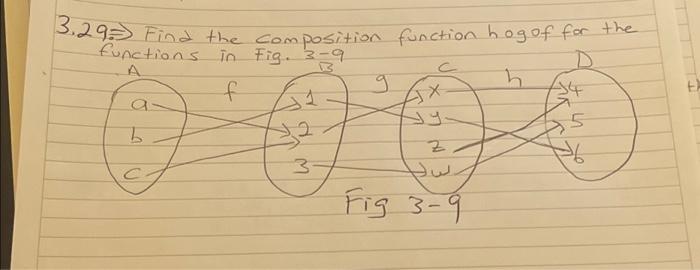 3.29⇒ Find the composition function hogof for the
functions in Fig. 3-9
A f B g C h D
a 1 x 4
b 2 y 5
c 3 z 6
w
Fig 3-9